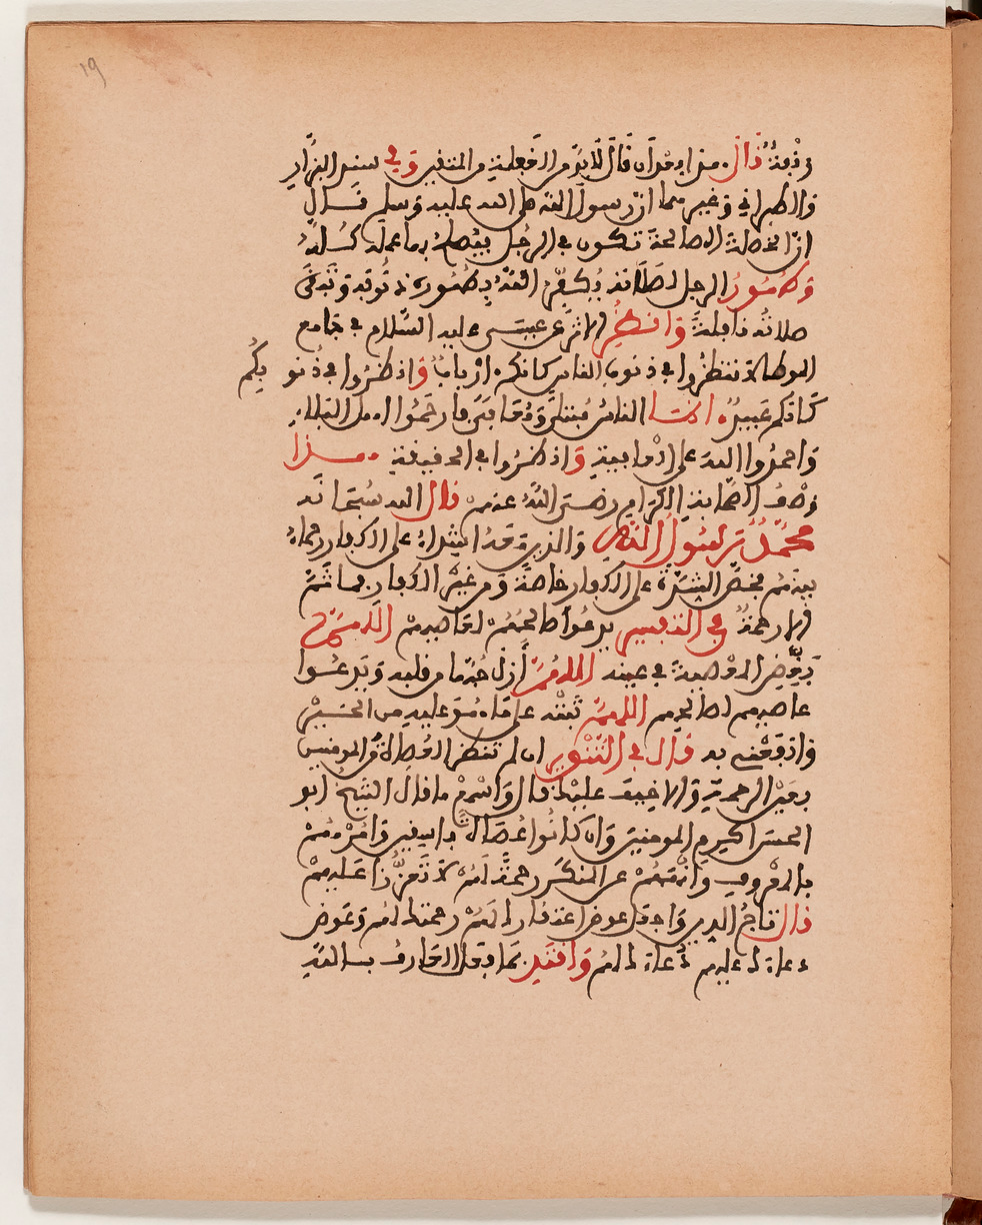 ١٩
قال من
والطبراني وغيرهما ان رسول الله صلى الله عليه وسلم قال
ان الخصلة الصالحة تكون في الرجل يصلح بها عمله كله
وطهور الرجل لصلاته يكفر الله بطهوره ذنوبه وتبقى
صلاته نافلة وانظر الاثر عن عيسى عليه السلام في جامع
الموطا لا تنظروا في ذنوب الناس كانكم ارباب وانظروا في ذنوبكم
كانكم عبيد انما الناس مبتلى ومعافى فارحموا اهل البلاء
واحمدوا الله على العافية وانظروا في الحقيقة هذا
وصف الصحابة الكرام رضي الله عنهم قال الله سبحانه
محمد رسول الله والذين معه اشداء على الكفار رحماء
بينهم فخص الشدة على الكفار خاصة ومن غير الكفار فما ثم
الا رحمة في النفيس يدعوا صالحهم لعاصيهم اللهم
بغض المعصية في عينه اللهم أزل همها من قلبه ويدعوا
عاصيهم لصالحهم اللهم ثبته على ما هو عليه من الخير
وانفعني به قال في التنوير ان لم تنظر العصاة من المومنين
بعين الرحمة والا خيف عليك قال واسمع ما قال الشيخ ابو
الحسن اكرم المومنين وان كانوا عصاة فاسقين وامرهم
بالمعروف وانههم عن المنكر رحمة لهم لا تعززا عليهم
قال تاج الدين واجعل عوض احتقارك لهم رحمتك لهم وعوض
دعاءك عليهم دعاءك لهم واقتد بما فعل العارف بالله